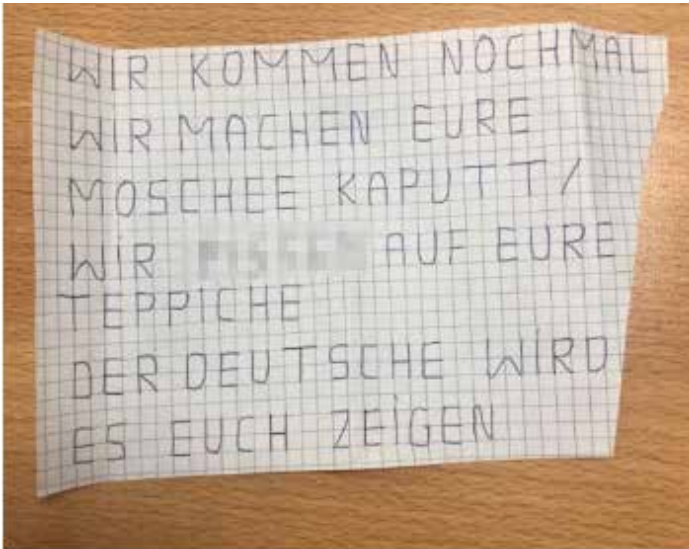 WIR KOMMEN NOCHMAL
WIR MACHEN EURE
MOSCHEE KAPUTT/
WIR AUF EURE
TEPPICHE
DER DEUTSCHE WIRD
ES EUCH ZEIGEN